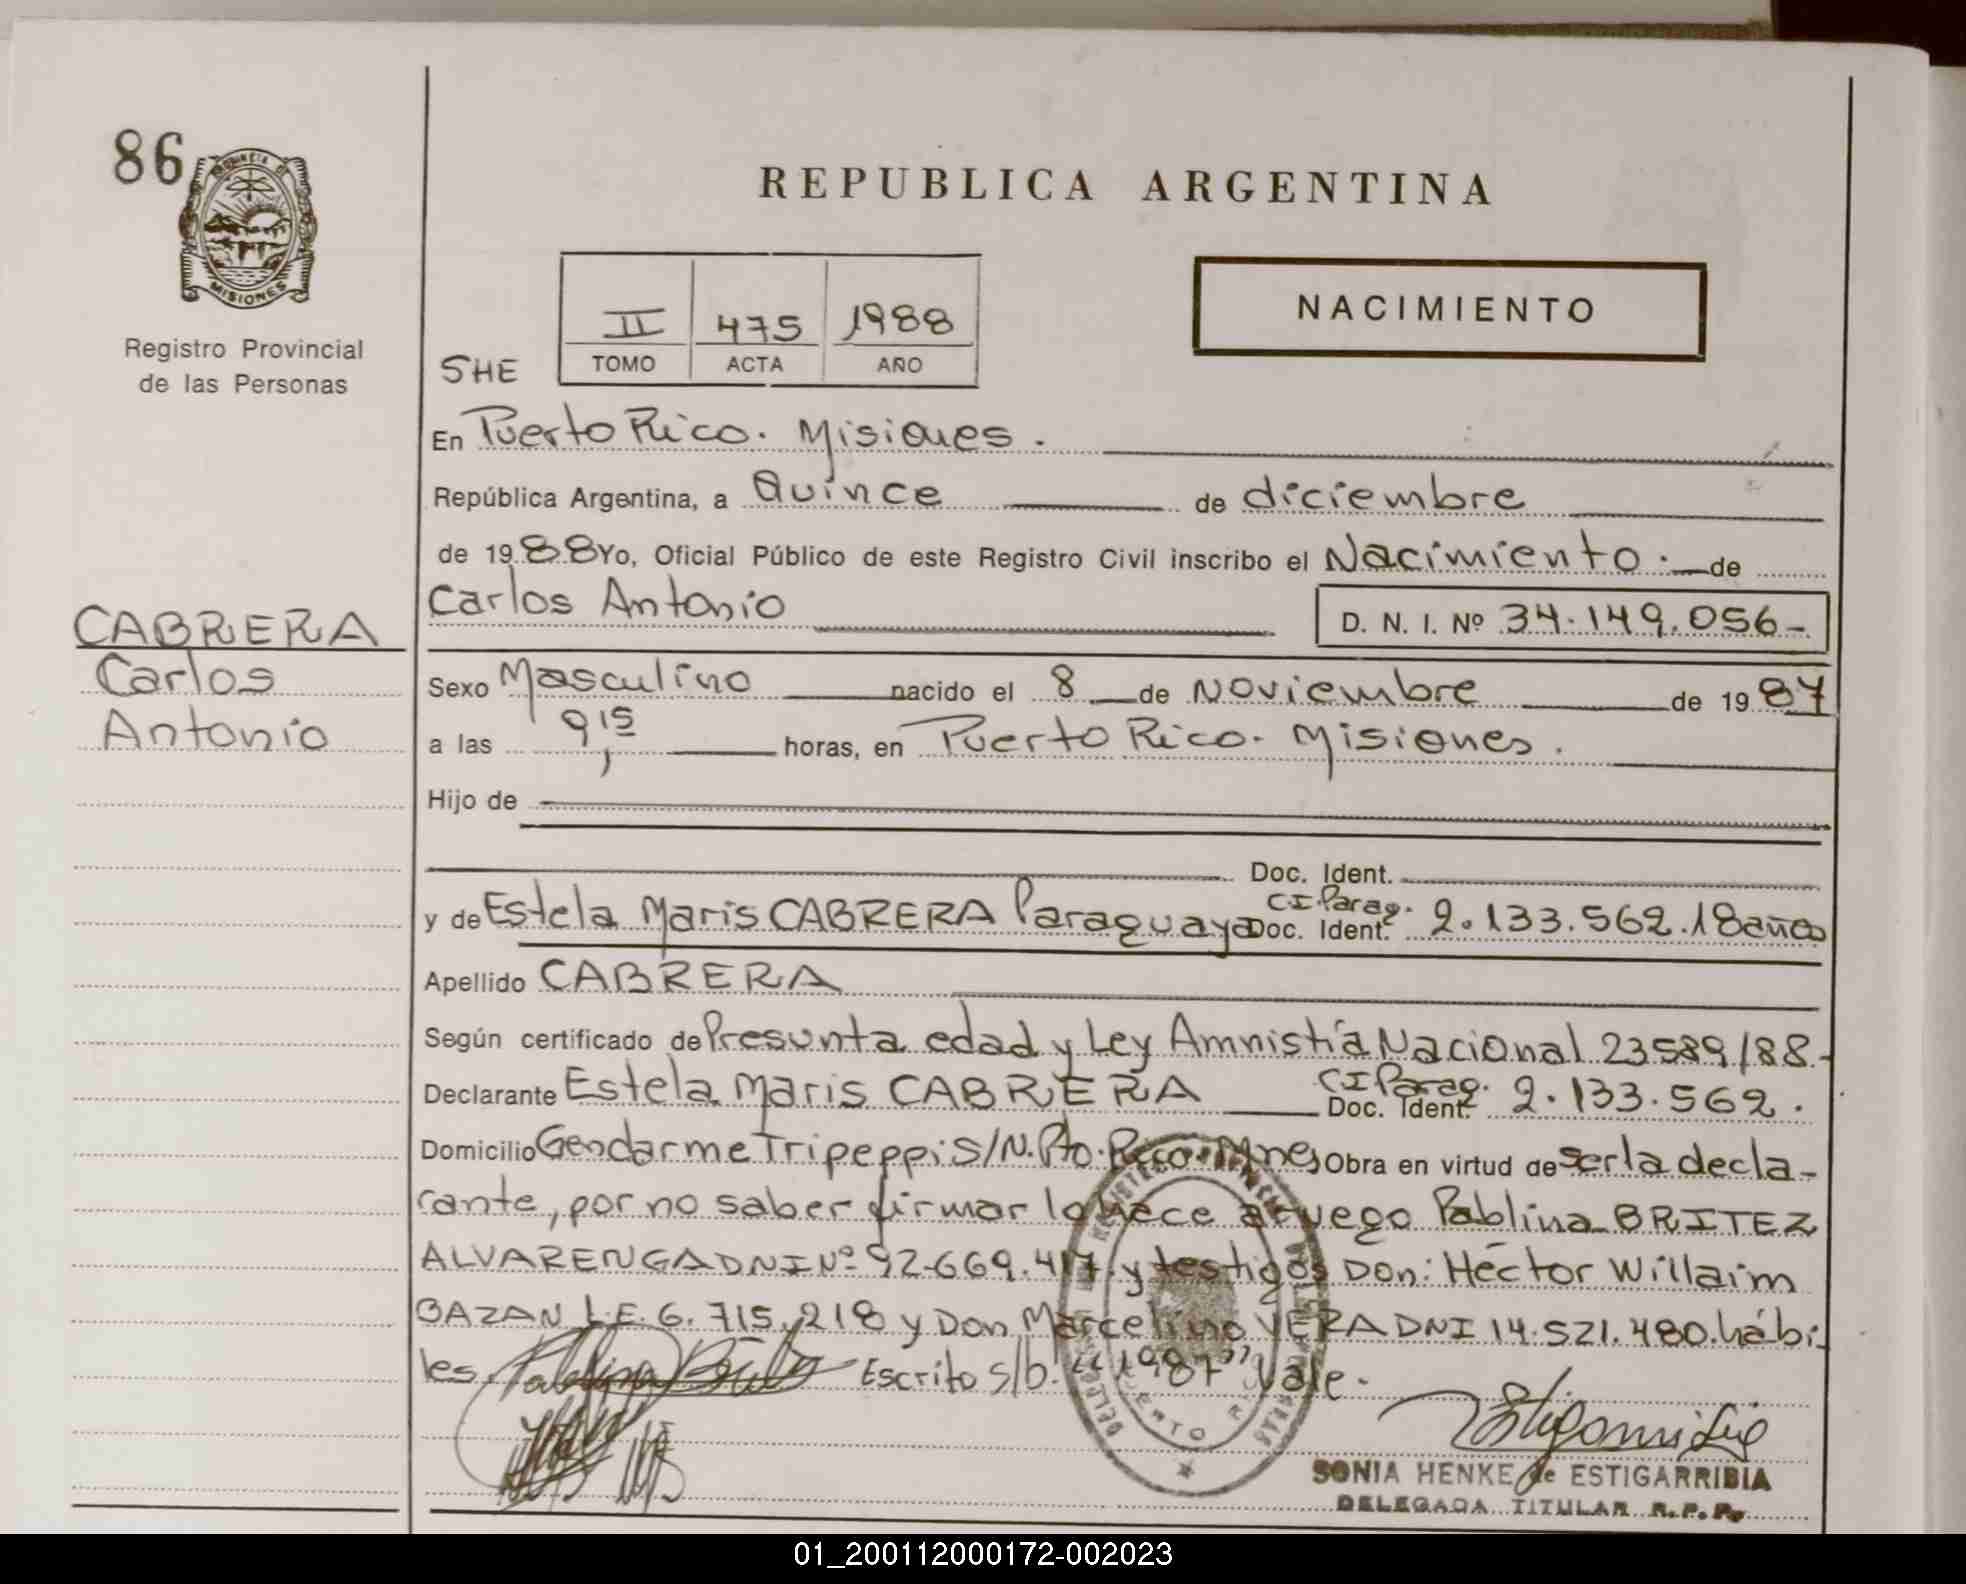 86
PROVINCIA DE
MISIONES
Registro Provincial
de las Personas
REPUBLICA ARGENTINA
NACIMIENTO
SHE
II 475 1988
TOMO ACTA AÑO
En Puerto Rico. Misiones.
República Argentina, a Quince de diciembre
de 1988 Yo, Oficial Público de este Registro Civil inscribo el Nacimiento. de
Carlos Antonio D. N. I. Nº 34.149.056-
CABRERA
Carlos
Antonio
Sexo Masculino nacido el 8 de Noviembre de 1987
a las 9,15 horas, en Puerto Rico. Misiones.
Hijo de
Doc. Ident.
y de Estela Maris CABRERA Paraguaya Doc. Ident. CI.Parag. 2.133.562.18años
Apellido CABRERA
Según certificado de Presunta edad y Ley Amnistía Nacional 23589/88.-
Declarante Estela Maris CABRERA CI Parag. Doc. Ident. 2.133.562.
Domicilio Gendarme Tripeppi S/N. Pto. Rico. Mnes Obra en virtud de ser la decla-
rante, por no saber firmar lo hace a ruego Pablina BRITEZ
ALVARENGA DNI Nº 92.669.417. y testigos Don: Héctor Willaim
BAZAN L.E. 6.715.218 y Don Marcelino VERA DNI 14.521.480. hábi-
les. Escrito s/b. "1987" Vale.
SONIA HENKE de ESTIGARRIBIA
DELEGADA TITULAR R.P.P.
01_200112000172-002023